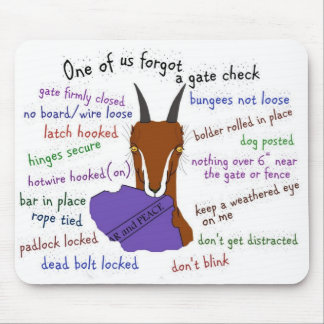 One of us forgot
a gate check
gate firmly closed
no board/wire loose
latch hooked
hinges secure
hotwire hooked(on)
bar in place
rope tied
padlock locked
dead bolt locked
bungees not loose
bolder rolled in place
dog posted
nothing over 6" near
the gate or fence
keep a weathered eye
on me
don't get distracted
don't blink
R and PEACE